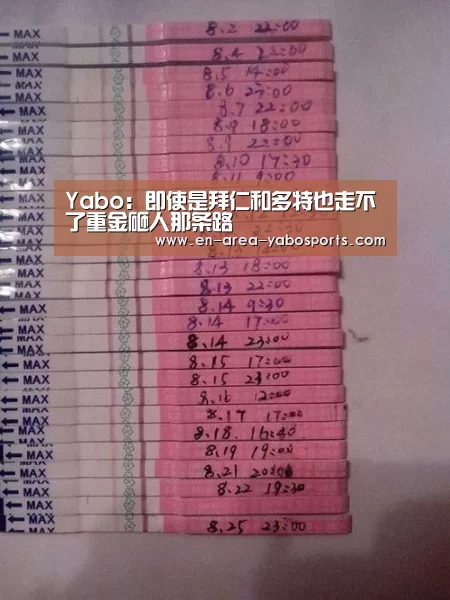 MAX 8.2 22:00
MAX 8.4 22:00
MAX 8.5 14:00
MAX 8.6 22:00
MAX 8.7 22:00
MAX 8.9 18:00
MAX 8.9 22:00
MAX 8.10 17:30
MAX 8.11 9:00
Yabo：即使是拜仁和多特也走不
了重金砸人那条路
www.en-area-yabosports.com
MAX 8.13 18:00
MAX 8.13 22:00
MAX 8.14 9:30
MAX 8.14 17:00
MAX 8.14 23:00
MAX 8.15 17:00
MAX 8.15 23:00
MAX 8.16 12:00
MAX 8.17 17:00
MAX 8.18. 16:30
MAX 8.19 19:00
MAX 8.21 20:00
MAX 8.22 19:30
MAX
MAX 8.25 23:00